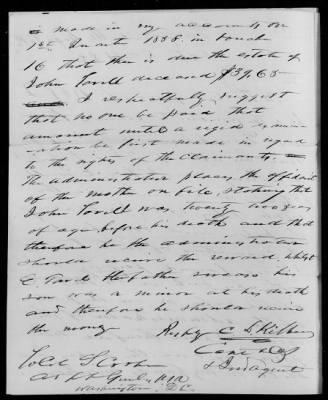 made in my accounts for
1st Quart 1858 in vouch
16 that there is due the estate of
John Tovell deceased $39.65
I respectfully suggest
that no one be paid that
amount until a rigid exami
nation be first made in regard
to the rights of the Claimants.
The administrator places the affidavit
of the mother on file, stating that
John Tovell was twenty two years
of age before his death and that
therefore he the administrator
should receive the reward, whilst
E. Tovell the father swears his
son was a minor at his death
and therefore he should receive
the money
Respty C. D.
Capt
& Ind Agent
To Col S Cooper
Adjt Genl USA
Washington, D.C.